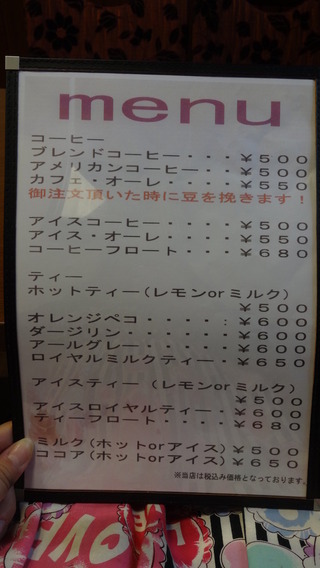 menu
コーヒー
ブレンドコーヒー・・・¥500
アメリカンコーヒー・・¥500
カフェ・オーレ・・・・¥550
御注文頂いた時に豆を挽きます!
アイスコーヒー・・・・¥500
アイス・オーレ・・・・¥550
コーヒーフロート・・・¥680
ティー
ホットティー(レモンorミルク)
¥500
オレンジペコ・・・・:¥600
ダージリン・・・・・・¥600
アールグレー・・・・・¥600
ロイヤルミルクティー・¥650
アイスティー (レモンorミルク)
¥500
アイスロイヤルティー・¥600
ティーフロート・・・・¥680
ミルク(ホットorアイス)¥500
ココア(ホットorアイス)¥650
※当店は税込み価格となっております。
LOVE